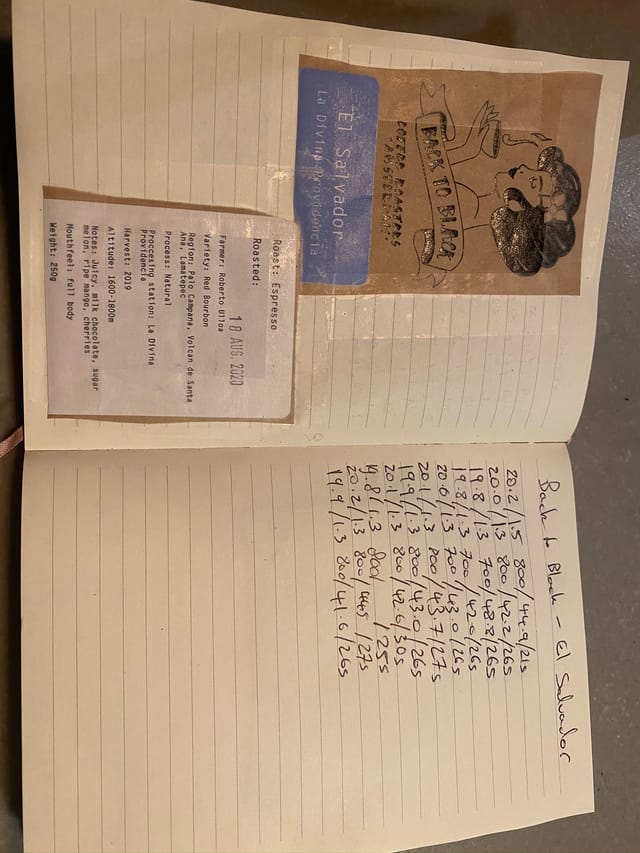 BACK TO BLACK
ROASTERS
AMSTERDAM
El Salvador
La Divina Providencia
Roast: Espresso
Roasted:
18 AUG. 2020
Farmer: Roberto Ulloa
Variety: Red Bourbon
Region: Palo Campana, Volcan de Santa
Ana, Lamatepec
Process: Natural
Processing station: La Divina
Providencia
Harvest: 2019
Altitude: 1600-1800m
Notes: Juicy, milk chocolate, sugar
melon, ripe mango, cherries
Mouthfeel: full body
Weight: 250g
Back to Black - El Salvador
20.2/1.5 800/44.9/21s
20.0/1.3 800/42.2/26s
19.8/1.3 700/48.8/26s
19.8/1.3 700/42.0/26s
20.0/1.3 700/43.0/26s
20.1/1.3 800/43.7/27s
19.9/1.3 800/43.0/26s
20.1/1.3 800/42.6/30s
19.8/1.3 800/ /25s
20.2/1.3 800/44.5/27s
19.9/1.3 800/41.6/26s